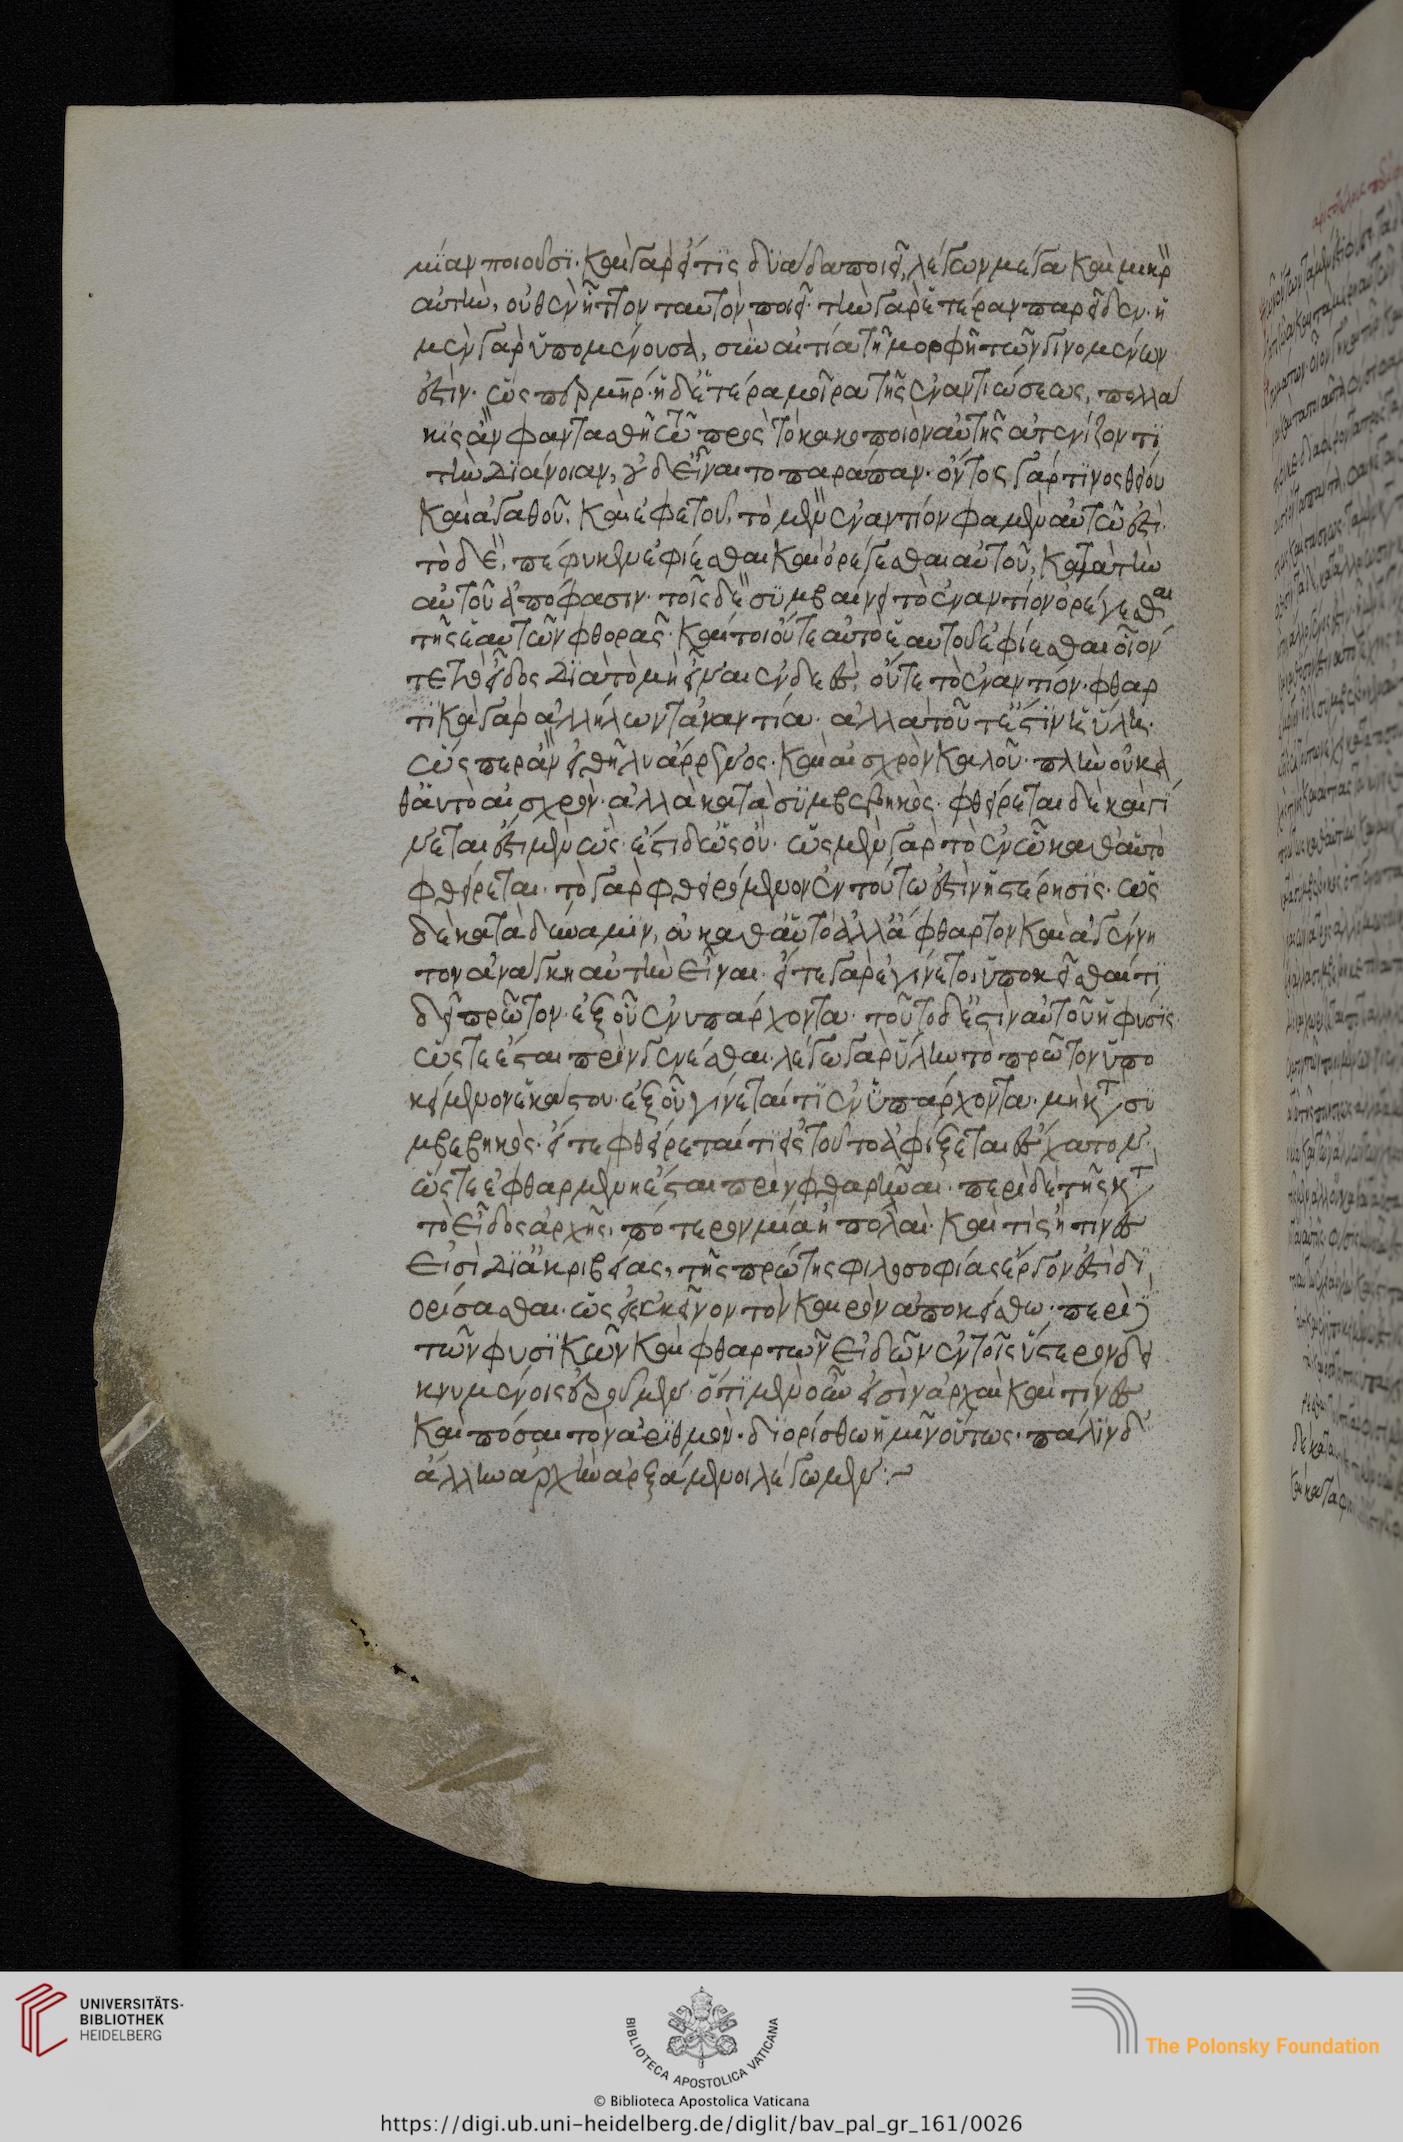 μίαν ποιοῦσι· καὶ γὰρ εἴ τις δυάδα ποιεῖ, λέγων μέγα καὶ μικρὸν
αὐτὴν, οὐθὲν ἧττον ταυτὸν ποιεῖ· τὴν γὰρ ἑτέραν παρεῖδεν· ἡ
μὲν γὰρ ὑπομένουσα, συναιτία τῆ μορφῆ τῶν γινομένων
ἐστὶν· ὥσπερ μήτηρ· ἡ δ' ἑτέρα μοῖρα τῆς ἐναντιώσεως, πολλά
κις ἂν φαντασθείη τῶ πρὸς τὸ κακοποιὸν αὐτῆς ἀτενίζοντι
τὴν διάνοιαν, οὐδ' εἶναι τοπαράπαν· ὄντος γάρ τινος θείου
καὶ ἀγαθοῦ, καὶ ἐφετοῦ, τὸ μὲν ἐναντίον φαμὲν αὐτῶ εἶναι·
τὸ δὲ, πέφυκεν ἐφίεσθαι καὶ ὀρέγεσθαι αὐτοῦ, κατὰ τὴν
αὐτοῦ ἀπόφασιν· τοῖς δὲ συμβαίνει τὸ ἐναντίον ὀρέγεσθαι
τῆς ἑαυτῶν φθορᾶς· καίτοι οὔτε αὐτὸ ἑαυτοῦ ἐφίεσθαι οἷόν
τε τὸ εἶδος διὰ τὸ μὴ εἶναι ἐνδεὲς, οὔτε τὸ ἐναντίον· φθαρ
τικὰ γὰρ ἀλλήλων τἀναντία· ἀλλὰ τοῦτ' ἔστιν ἡ ὕλη·
ὥσπερ ἂν εἰ θῆλυ ἄρρενος· καὶ αἰσχρὸν καλοῦ· πλὴν οὐ κα
θ' αὑτὸ αἰσχρὸν· ἀλλὰ κατὰ συμβεβηκός· φθείρεται δὲ καὶ γί
νεται ἔστι μὲν ὡς· ἔστι δ' ὡς οὐ· ὡς μὲν γὰρ τὸ ἐν ὧ καθ' αὑτὸ
φθείρεται· τὸ γὰρ φθειρόμενον ἐν τούτω ἐστὶν ἡ στέρησις· ὡς
δὲ κατὰ δύναμιν, οὐ καθ' αὑτὸ ἀλλ' ἄφθαρτον καὶ ἀγέννη
τον ἀνάγκη αὐτὴν εἶναι· εἴτε γὰρ ἐγίνετο, ὑποκεῖσθαί τι
δεῖ πρῶτον· ἐξ οὗ ἐνυπάρχοντα· τοῦτο δ' ἐστὶν αὐτοῦ ἡ φύσις
ὥστε ἔσται πρὶν γενέσθαι· λέγω γὰρ ὕλην τὸ πρῶτον ὑπο
κείμενον ἑκάστου· ἐξ οὗ γίνεταί τι ἐνϋπάρχοντα· μὴ κατὰ συ
μβεβηκός· εἴτε φθείρεταί τι εἰς τοῦτο ἀφίξεται ἔσχατον·
ὥστε ἐφθαρμένη ἔσται πρὶν φθαρῆναι· περὶ δὲ τῆς κατὰ
τὸ εἶδος ἀρχῆς, πότερον μία ἢ πολλαὶ· καὶ τίς ἢ τίνες
εἰσὶ δι' ἀκριβείας, τῆς πρώτης φιλοσοφίας ἔργον ἐστὶ δι
ορίσασθαι· ὥς εἰς ἐκεῖνον τὸν καιρὸν ἀποκείσθω· περὶ δὲ
τῶν φυσικῶν καὶ φθαρτῶν εἰδῶν ἐν τοῖς ὕστερον δει
κνυμένοις ἐροῦμεν· ὅτι μὲν οὖν εἰσὶν ἀρχαὶ καὶ τίνες
καὶ πόσαι τὸν ἀριθμὸν· διορίσθω ἡμῖν οὕτως· πάλιν δ'
ἄλλην ἀρχὴν ἀρξάμενοι λέγωμεν:~
UNIVERSITÄTS-
BIBLIOTHEK
HEIDELBERG
BIBLIOTECA APOSTOLICA VATICANA
© Biblioteca Apostolica Vaticana
The Polonsky Foundation
https://digi.ub.uni-heidelberg.de/diglit/bav_pal_gr_161/0026